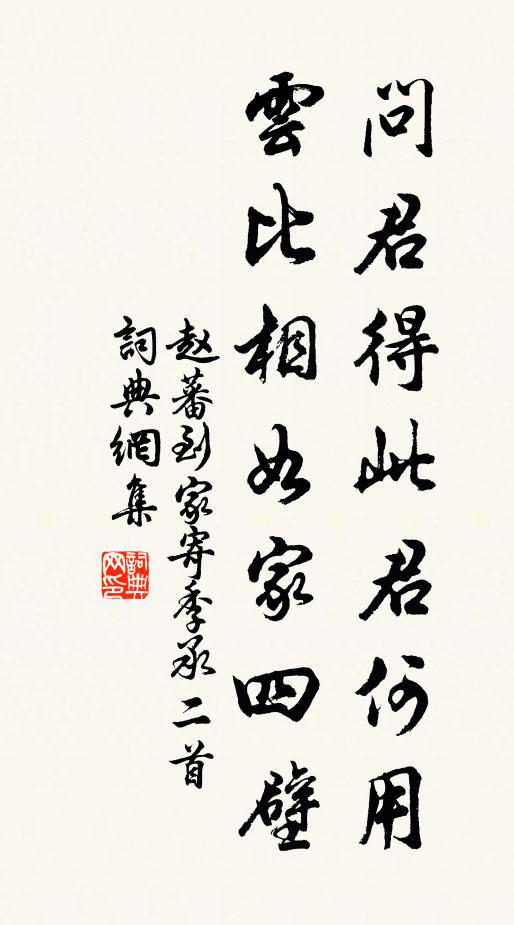 問君得此君何用
雲比相如家四壁
赵蕃到家寄季承二首
詞典網集
詞典网印